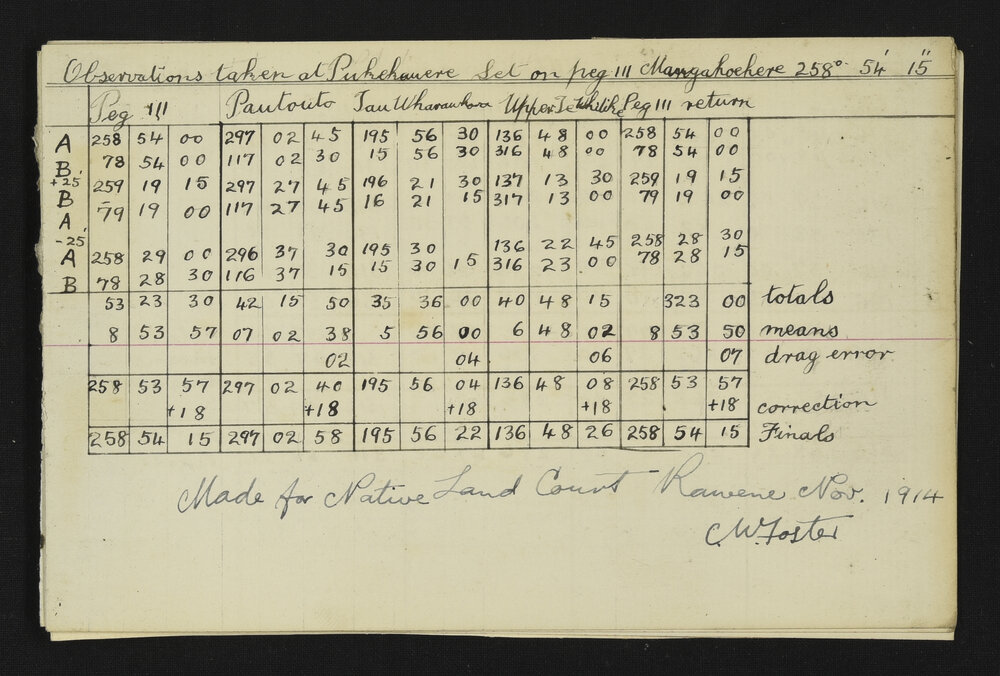 Observations taken at Pukehuere Set on peg III Mangahoehere 258° 54' 15"
Peg III Pautouto Tau Wharauhora Upper Peg III return
A 258 54 00 297 02 45 195 56 30 136 48 00 258 54 00
B 78 54 00 117 02 30 15 56 30 316 48 00 78 54 00
+25'
B 259 19 15 297 27 45 196 21 30 137 13 30 259 19 15
A 79 19 00 117 27 45 16 21 15 317 13 00 79 19 00
-25'
A 258 29 00 296 37 30 195 30 136 22 45 258 28 30
B 78 28 30 116 37 15 15 30 15 316 23 00 78 28 15
53 23 30 42 15 50 35 36 00 40 48 15 323 00 totals
8 53 57 07 02 38 5 56 00 6 48 02 8 53 50 means
02 04 06 07 drag error
258 53 57 297 02 40 195 56 04 136 48 08 258 53 57
+18 +18 +18 +18 +18 correction
258 54 15 297 02 58 195 56 22 136 48 26 258 54 15 Finals
Made for Native Land Court Rawene Nov. 1914
C.W. Foster